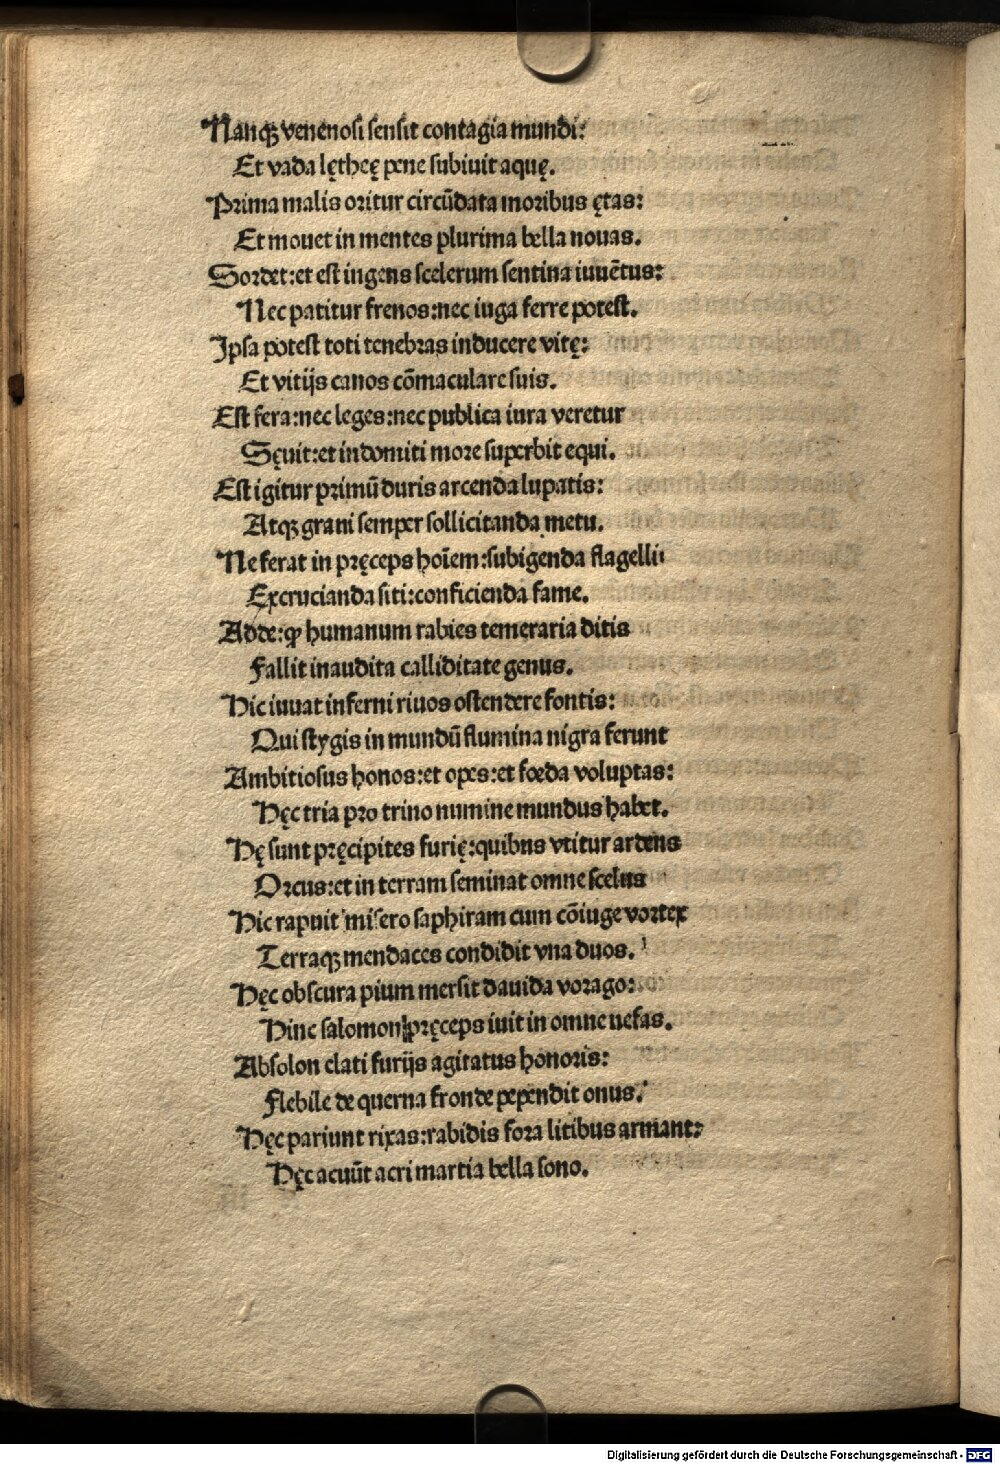 Nanqꝫ venenosi sensit contagia mundi:
Et vada lętheę pene subiuit aquę.
Prima malis oritur circūdata moribus ętas:
Et mouet in mentes plurima bella nouas.
Sordet: et est ingens scelerum sentina iuuētus:
Nec patitur frenos: nec iuga ferre potest.
Ipsa potest toti tenebras inducere vitę:
Et vitijs canos cōmaculare suis.
Est fera: nec leges: nec publica iura veretur
Sęuit: et indomiti more superbit equi.
Est igitur primū duris arcenda lupatis:
Atqꝫ graui semper sollicitanda metu.
Ne ferat in pręceps hoīem: subigenda flagelli
Excrucianda siti: conficienda fame.
Adde: ꝙ humanum rabies temeraria ditis
Fallit inaudita calliditate genus.
Hic iuuat inferni riuos ostendere fontis:
Qui stygis in mundū flumina nigra ferunt
Ambitiosus honos: et opes: et fœda voluptas:
Hęc tria pro trino numine mundus habet.
Hę sunt pręcipites furię: quibus vtitur ardens
Orcus: et in terram seminat omne scelus
Hic rapuit misero saphiram cum cōiuge vortex
Terraqꝫ mendaces condidit vna duos.
Hęc obscura pium mersit dauida vorago:
Hinc salomon pręceps iuit in omne nefas.
Absolon elati furijs agitatus honoris:
Flebile de querna fronde pependit onus.
Hęc pariunt rixas: rabidis fora litibus armant:
Hęc acuūt acri martia bella sono.
Digitalisierung gefördert durch die Deutsche Forschungsgemeinschaft - DFG